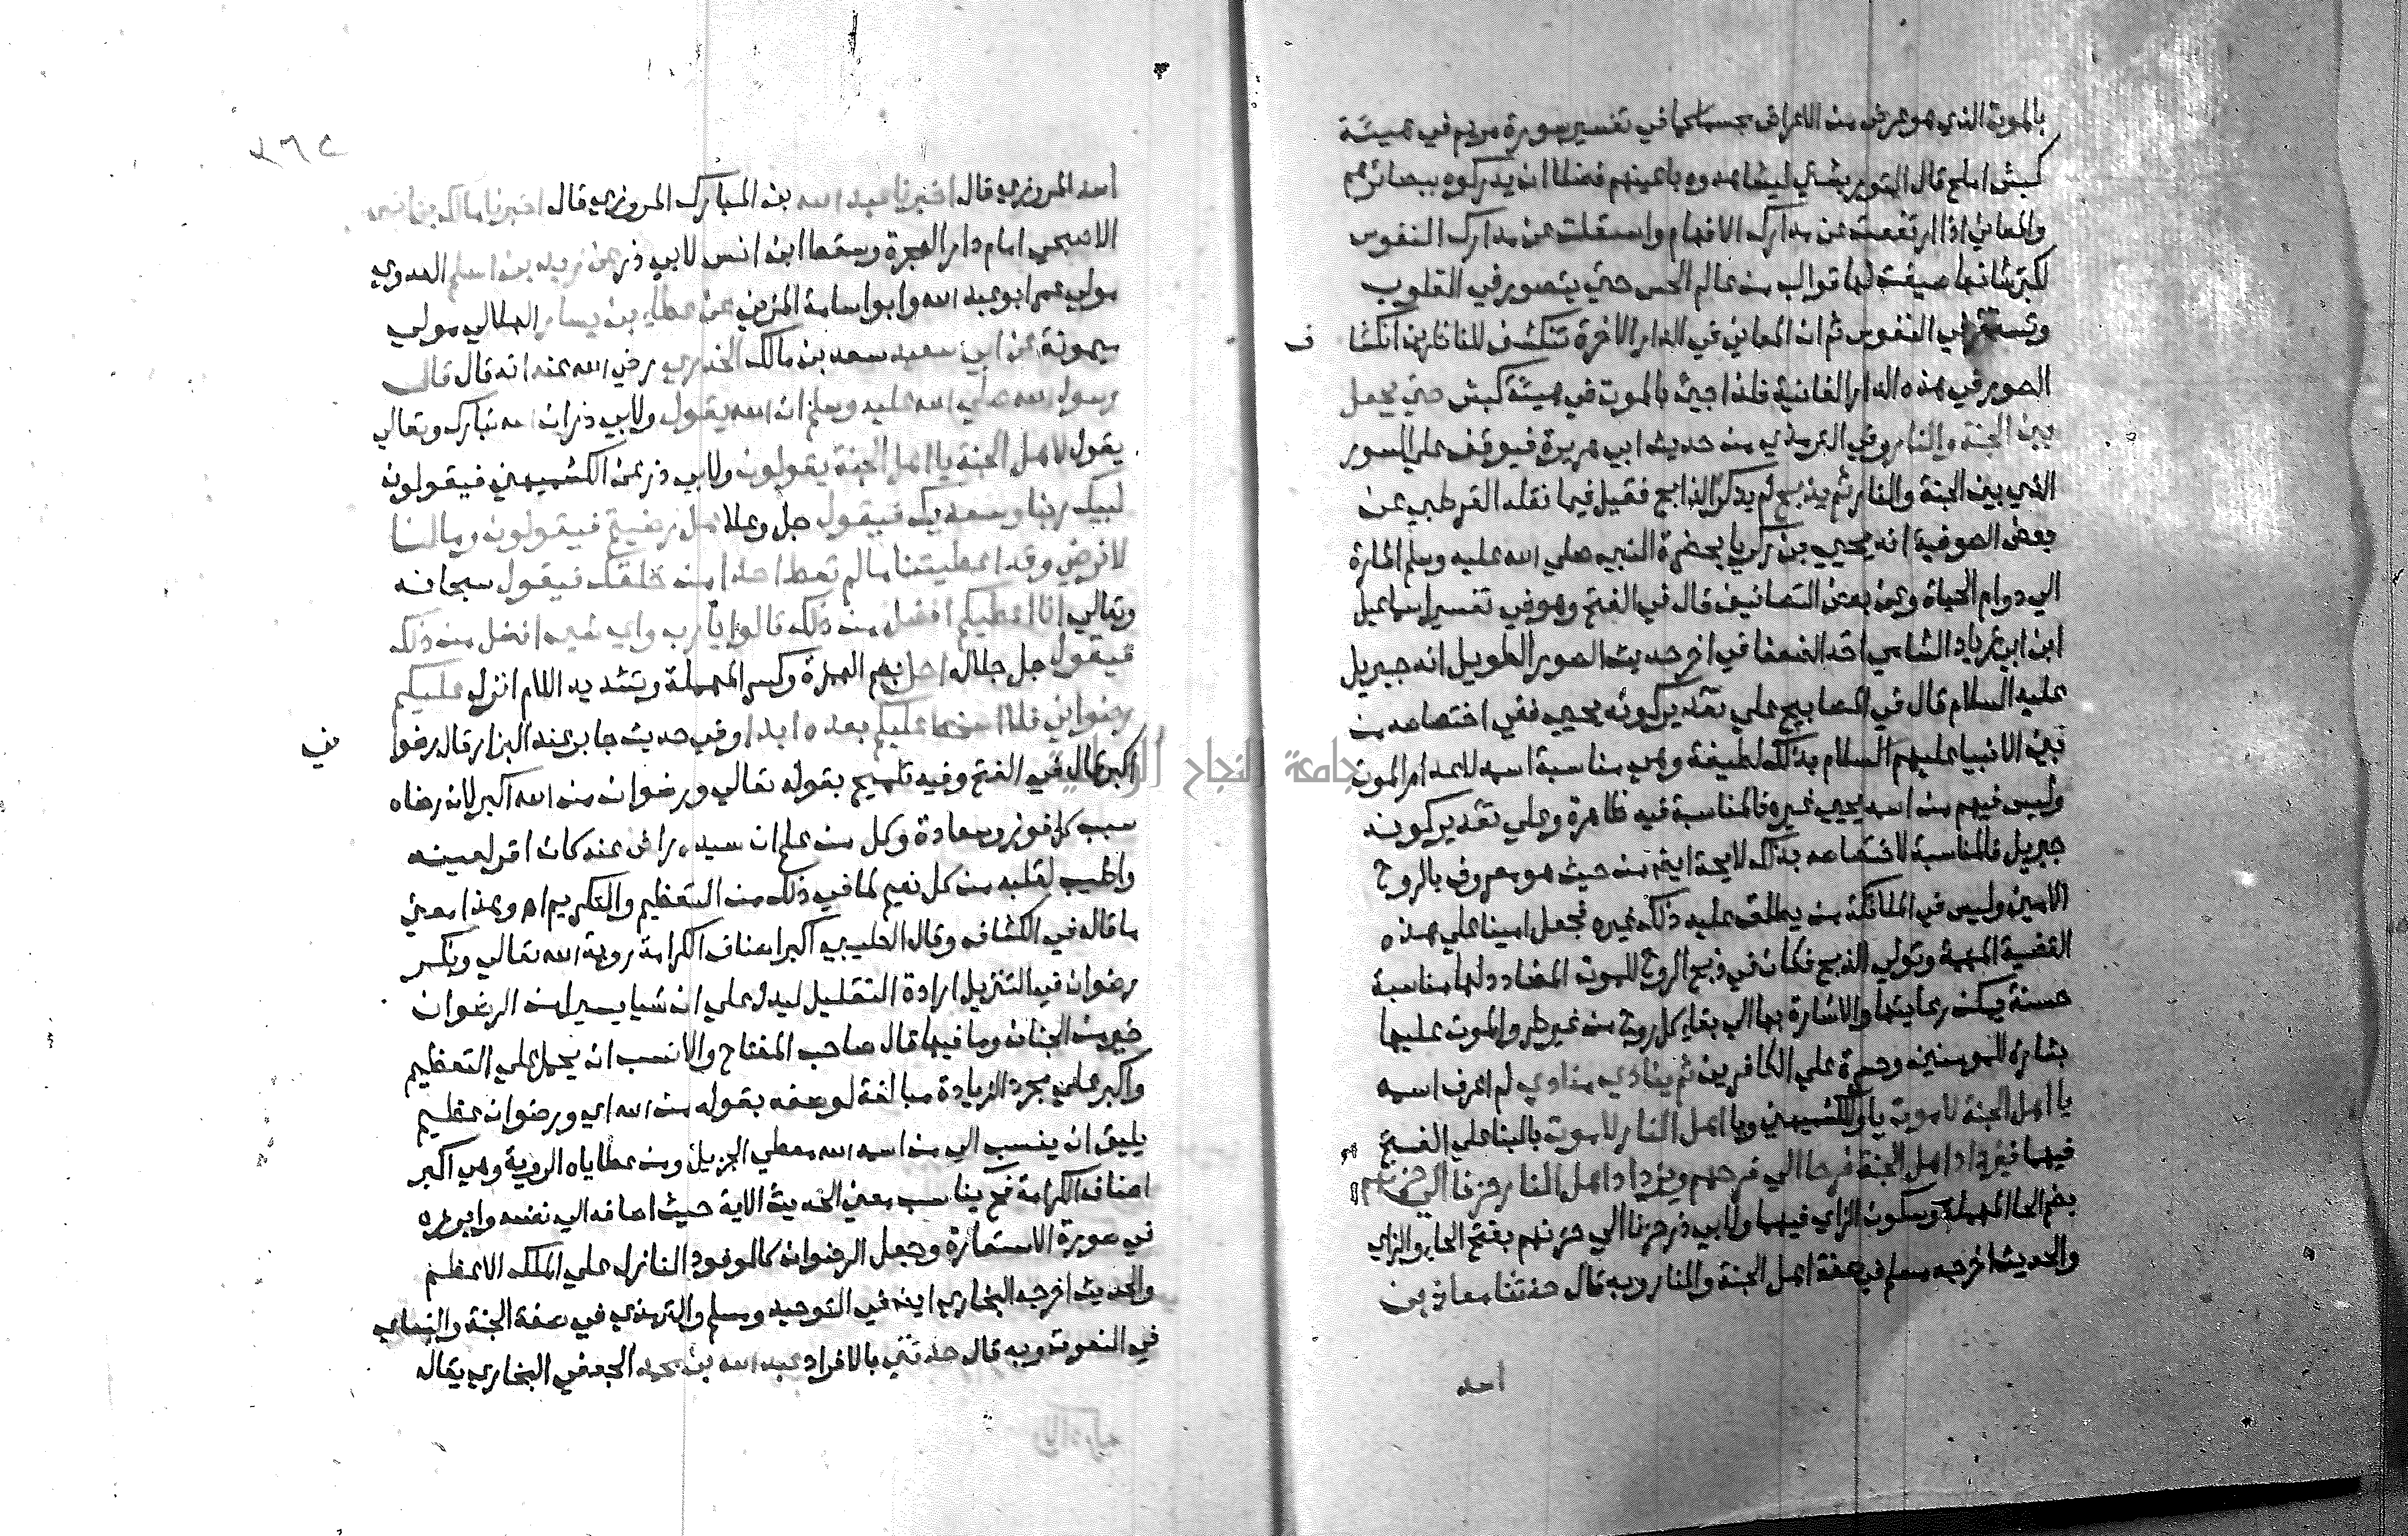 بالموت الذي هو عرض من الاعراض مجسما كما في تفسير سورة مريم في هيئة
كبش املح قال التوربشتي ليشاهدوه باعينهم فضلا ان يدركوه ببصائرهم
والمعاني اذا ارتفعت عن مدارك الافهام واستقلت عن مدارك النفوس
لكبر شانها صيغت لها قوالب من عالم الحس حتي يتصور في القلوب
وتستقر في النفوس ثم ان المعاني في الدار الاخرة تنكشف للناظرين انكشا ف
الصور في هذه الدار الفانية فلذا جيئ بالموت في هيئة كبش حتي يجعل
بين الجنة والنار وفي الترمذي من حديث ابي هريرة فيوقف علي السور
الذي بين الجنة والنار ثم يذبح لم يذكر الذابح فقيل فيما نقله القرطبي عن
بعض الصوفية انه يحيي بن زكريا بحضرة النبي صلي الله عليه وسلم اشارة
الي دوام الحياة وعن بعض التصانيف قال في الفتح وهو في تفسير اسماعيل
ابن ابي زياد الشامي احد الضعفا في اخر حديث الصور الطويل انه جبريل
عليه السلام قال في المصابيح علي تقدير كونه يحيي ففي اختصاصه من
بين الانبيا عليهم السلام بذلك لطيفة وهي مناسبة اسمه لاعدام الموت
وليس فيهم من اسمه يحيي غيره فالمناسبة فيه ظاهرة وعلي تقدير كونه
جبريل فالمناسبة لاختصاصه بذلك لايحة ايضا من حيث هو معروف بالروح
الامين وليس في الملائكة من يطلق عليه ذلك غيره فجعل امينا علي هذه
القضية المهمة وتولي الذبح فكان في ذبح الروح للموت المضاد دلها مناسبة
حسنة يمكن رعايتها والاشارة بها الي بقاء كل روح من غير طرو الموت عليها
بشارة للمومنين وحسرة علي الكافرين ثم ينادي منادي لم اعرف اسمه
يا اهل الجنة لا موت يا وللكشميهني ويا اهل النار لا موت بالبنا علي الفتح
فيهما فيزداد اهل الجنة فرحا الي فرحهم ويزداد اهل النار حزنا الي حزنهم
بضم الحا المهملة وسكون الزاي فيهما ولابي ذر حزنا الي حزنهم بفتح الحاء والزاي
والحديث اخرجه مسلم في صفة اهل الجنة والنار وبه قال حدثنا معاذ بن
احد
اسد المروزي قال اخبرنا عبد الله بن المبارك المروزي قال اخبرنا مالك بن انس
الاصبحي امام دار الهجرة وسقط ابن انس لابي ذر عن زيد بن اسلم العدوي
مولي عمر ابو عبد الله وابو اسامة المزني عن عطاء بن يسار الهلالي مولي
ميمونة عن ابي سعيد سعد بن مالك الخدري رضي الله عنه انه قال قال
رسول الله صلي الله عليه وسلم ان الله يقول ولابي ذر ان الله تبارك وتعالي
يقول لاهل الجنة يا اهل الجنة يقولون ولابي ذر عن الكشميهني فيقولون
لبيك ربنا وسعديك فيقول جل وعلا هل رضيتم فيقولون وما لنا
لا نرضي وقد اعطيتنا ما لم تعط احدا من خلقك فيقول سبحانه
وتعالي انا اعطيكم افضل من ذلك قالوا يا رب واي شيء افضل من ذلك
فيقول جل جلاله احل بضم الهمزة وكسر المهملة وتشديد اللام انزل عليكم
رضواني فلا اسخط عليكم بعده ابدا وفي حديث جابر عند البزار قال رضوا ني
اكبر قال في الفتح وفيه تلميح بقوله تعالي ورضوان من الله اكبر لان رضاه
سبب كل فوز وسعادة وكل من علم ان سيده راض عنه كان اقر لعينه
واطيب لقلبه من كل نعيم لما في ذلك من التعظيم والتكريم اه وهذا معني
ما قاله في الكشاف وقال الطيبي اكبر اصناف الكرامة روية الله تعالي ونكر
رضوان في التنزيل ارادة التقليل ليدل علي ان شيا يسيرا من الرضوان
خير من الجنان وما فيها قال صاحب المفتاح والانسب ان يحمل علي التعظيم
واكبر علي مجرد الزيادة مبالغة لوصفه بقوله من الله اي ورضوان عظيم
يليق ان ينسب الي من اسمه الله معطي الجزيل ومن عطاياه الروية وهي اكبر
اصناف الكرامة فح يناسب معني الحديث الاية حيث اضافه الي نفسه وابرزه
في صورة الاستعارة وجعل الرضوان كالموفود النازل علي الملك الاعظم
والحديث اخرجه البخاري ايضا في التوحيد ومسلم والترمذي في صفة الجنة والنساي
في النعوت وبه قال حدثني بالافراد عبد الله بن محمد الجعفي البخاري يقال